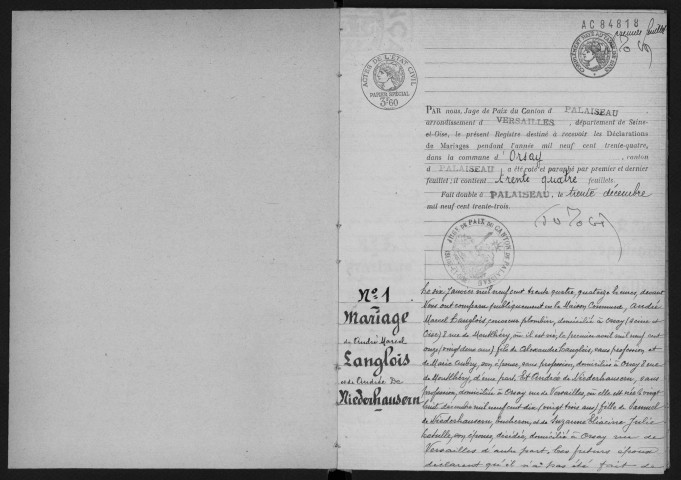 AC84818
premier feuillet
ACTES DE L'ETAT CIVIL
PAPIER SPECIAL
3F60
PAR nous, Juge de Paix du Canton d PALAISEAU
arrondissement d VERSAILLES, département de Seine-
et-Oise, le présent Registre destiné à recevoir les Déclarations
de Mariages pendant l'année mil neuf cent trente-quatre,
dans la commune d'Orsay, canton
d PALAISEAU a été coté et paraphé par premier et dernier
feuillet; il contient trente quatre feuillets.
Fait double à PALAISEAU, le trente décembre
mil neuf cent trente-trois.
JUGE DE PAIX DU CANTON DE PALAISEAU
N° 1
Mariage
de André Marcel
Langlois
et de Andrée De
Niederhausern
Le six Janvier mil neuf cent trente quatre, quatorze heures, devant
Nous ont comparu publiquement en la Maison Commune, André
Marcel Langlois, couvreur plombier, domicilié à Orsay (Seine et
Oise) 8 rue de Montlhéry, où il est né, le premier avril mil neuf cent
onze (vingt deux ans), fils de Alexandre Langlois, sans profession et
de Marie Aubry, son épouse, sans profession, domiciliés à Orsay 8 rue
de Montlhéry, d'une part, Et Andrée de Niederhausern, sans
profession, domiciliée à Orsay rue de Versailles, où elle est née le vingt
huit décembre mil neuf cent dix (vingt trois ans) fille de Samuel
de Niederhausern, bucheron, et de Suzanne Julie
son épouse, décédée, domicilié à Orsay rue de
Versailles d'autre part. Les futurs époux
déclarent qu'il n'a pas été fait de